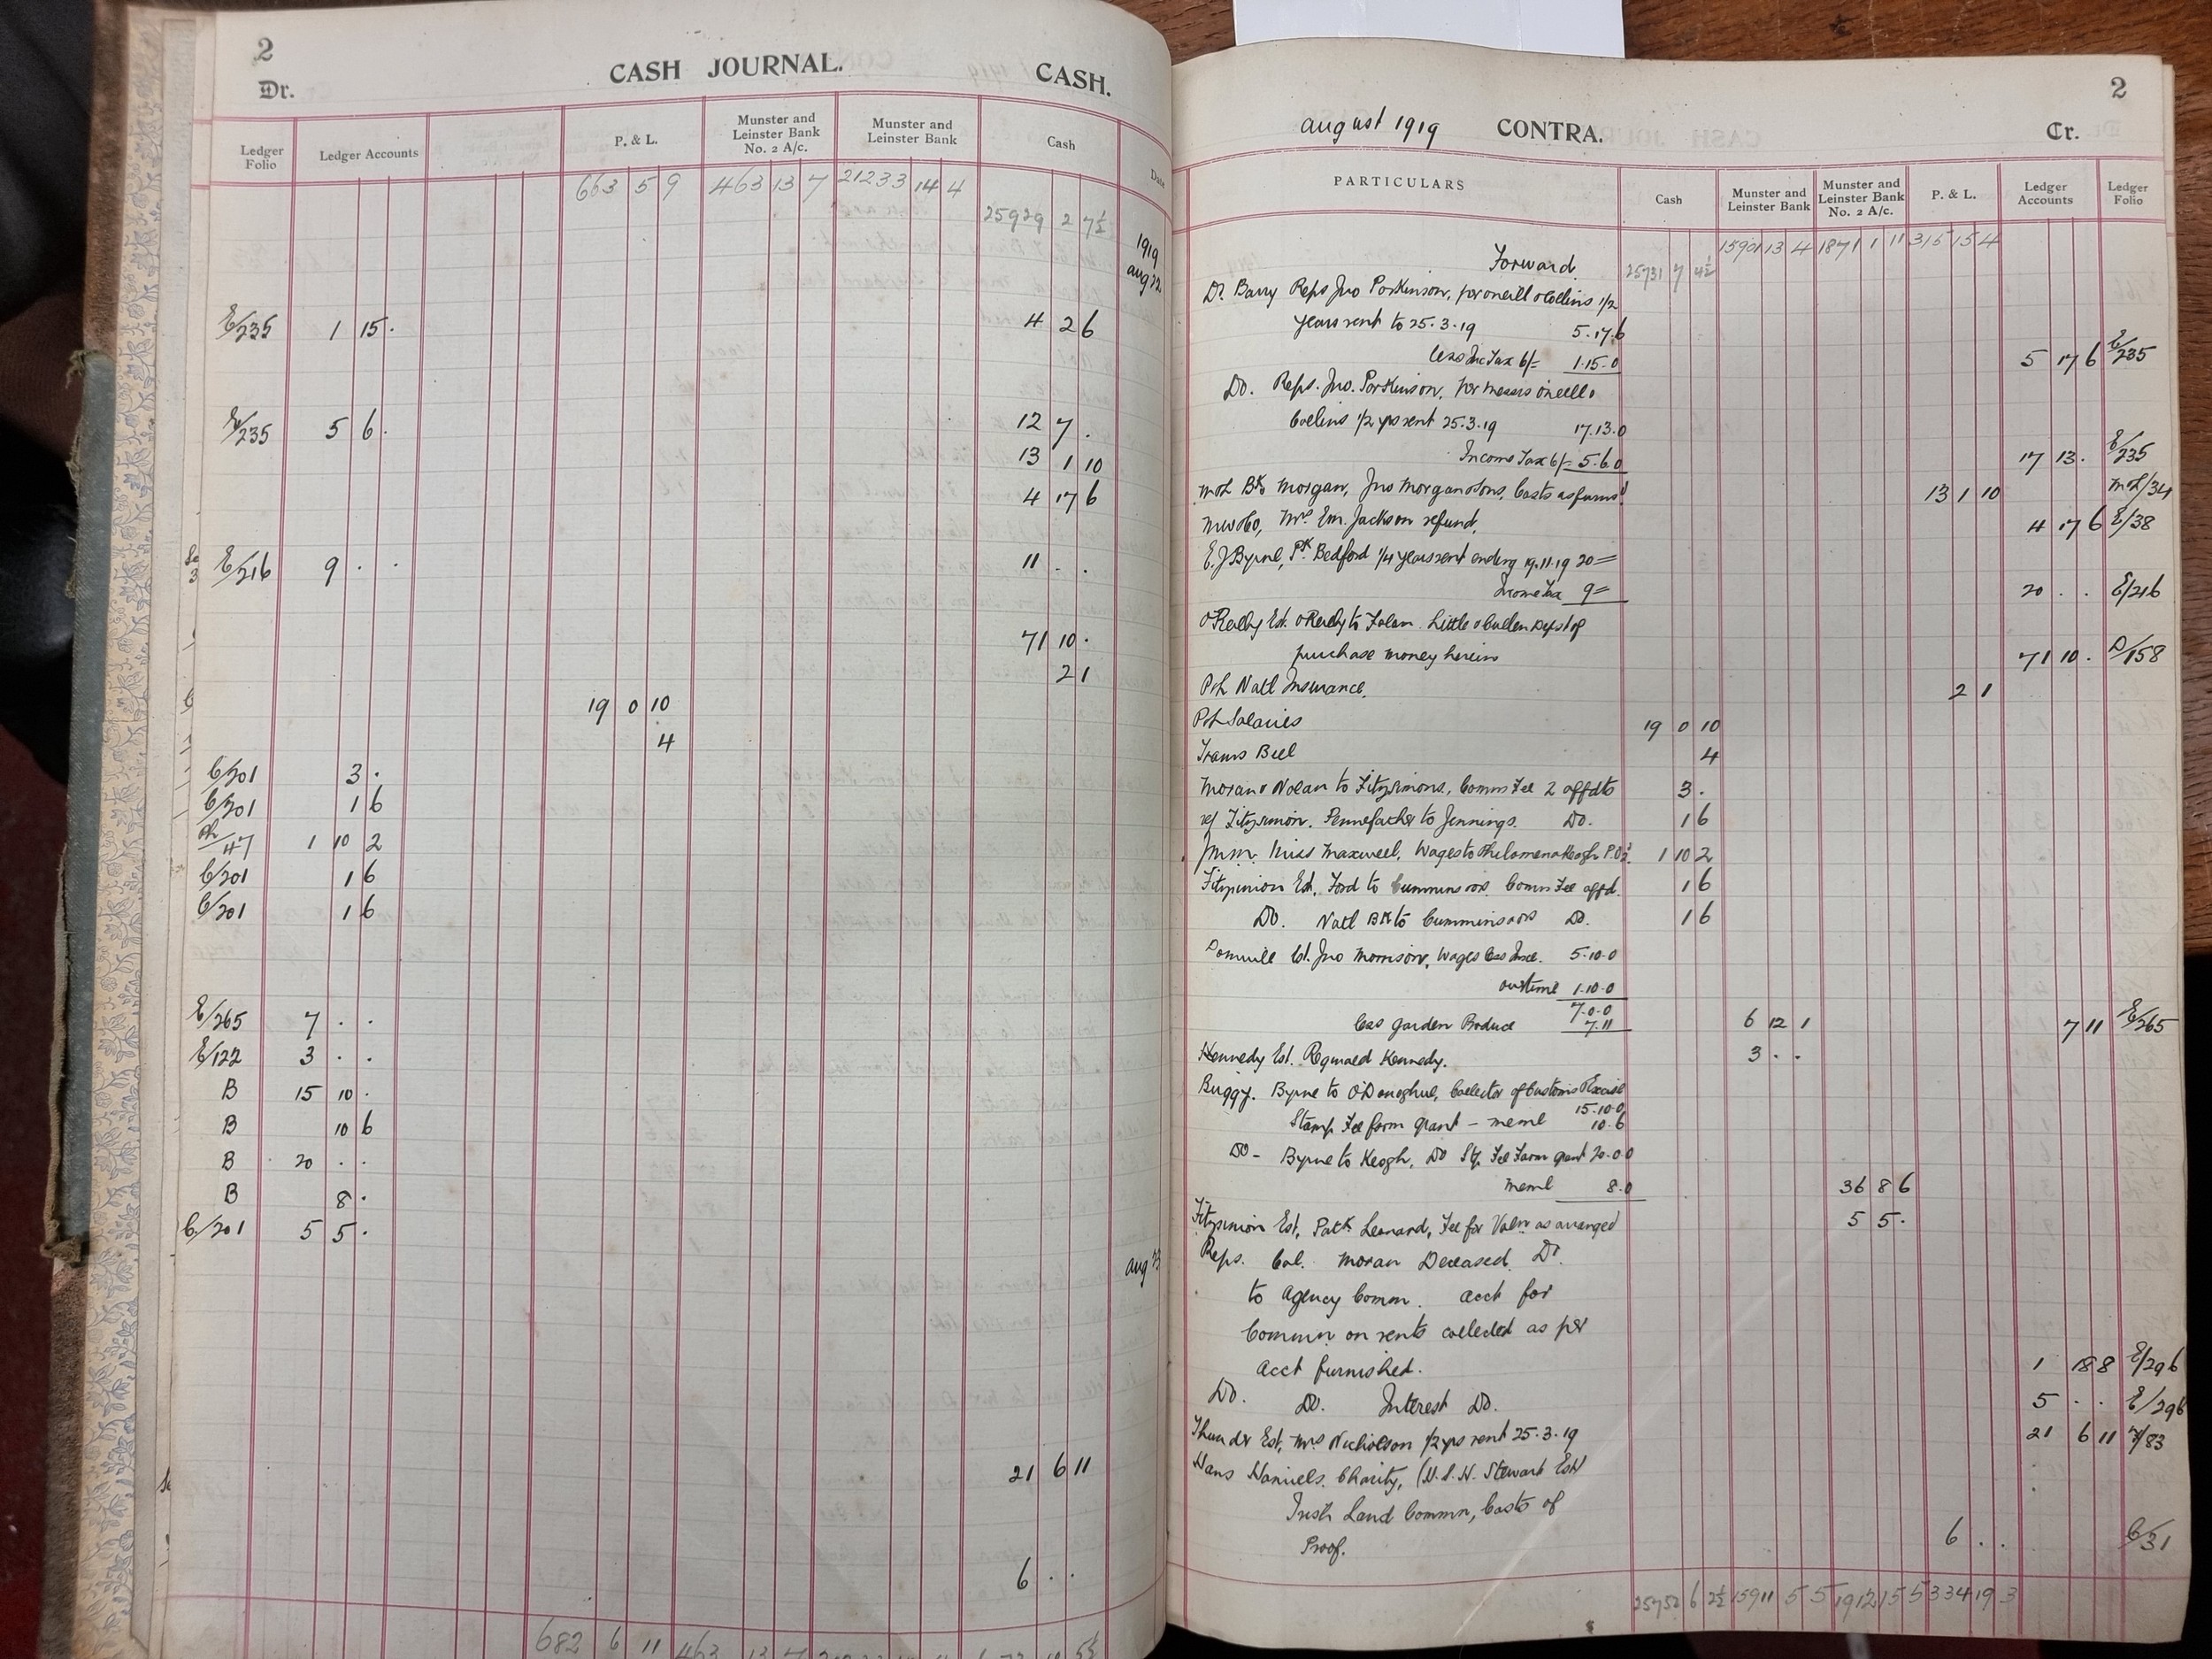 2
Dr.
CASH JOURNAL.
CASH.
Ledger Folio
Ledger Accounts
P. & L.
Munster and Leinster Bank No. 2 A/c.
Munster and Leinster Bank
Cash
Date
663 5 9 463 13 7 21233 14 4
25929 2 7½
1919
Aug 22.
E/235 1 15 . 4 2 6
E/235 5 6 . 12 7 .
13 1 10
4 17 6
E/216 9 . . 11 . .
71 10 .
2 1
19 0 10
4
C/201 3 .
C/201 1 6
Ph/47 1 10 2
C/201 1 6
C/201 1 6
E/265 7 . .
E/122 3 . .
B 15 10 .
B 10 6
B 20 . .
B 8 .
C/201 5 5 .
Aug 23
21 6 11
6 . .
682 6 11 463 13 7
2
August 1919
CONTRA.
Cr.
PARTICULARS
Cash
Munster and Leinster Bank
Munster and Leinster Bank No. 2 A/c.
P. & L.
Ledger Accounts
Ledger Folio
15901 13 4 1871 1 11 315 15 4
Forward 25731 7 4½
Dr. Barry Reps Jno Parkinson, per oneill & Collins 1/2
years rent to 25.3.19 5.17.6
less Inc Tax 6/= 1.15.0 5 17 6 E/235
Do. Reps. Jno. Parkinson, per Messrs oneill &
Collins 1/2 yrs rent 25.3.19 17.13.0
Income Tax 6/= 5.6.0 17 13 . E/235
Morgan, Jno Morgan & Sons, Costs as furnd 13 1 10 /34
Mrs Em. Jackson refund, 4 17 6 E/38
E. J Byrne, Pk. Bedford 1/4 years rent ending 19.11.19 20=
Income Tax 9= 20 . . E/216
O'Reilly Est. O'Reilly to Folan. Little & Cullen Dept of
purchase money herein 71 10 . D/158
P&L Natl Insurance. 2 1
P&L Salaries 19 0 10
Trams Bill 4
Moran & Nolan to Fitzsimons, Comm Fee 2 affdts 3 .
rf Fitzsimon. Pennefather to Jennings. Do. 1 6
Miss Maxwell, Wages to Philomena Keogh 1 10 2
Fitzsimon Est. Ford to Cummins & ors Comm Fee affd. 1 6
Do. Natl Bk to Cummins & ors Do. 1 6
Domvile Est. Jno Morrison, Wages less Insce. 5.10.0
overtime 1.10.0
7.0.0
less Garden Produce 7.11 6 12 1 7 11 E/265
Kennedy Est. Reginald Kennedy. 3 . .
Buggy. Byrne to O'Donoghue, Collector of Customs & Excise
15.10.0
Stamp Fee farm grant - meml 10.6
Do - Byrne to Keogh, Do Sty. Fee Farm grant 20.0.0
meml 8.0 36 8 6
Fitzsimon Est, Patk Leonard, Fee for Valn as arranged 5 5 .
Reps. Col. Moran Deceased. Dr.
to Agency Commn. acct for
Commn on rents collected as per
acct furnished. 1 18 8 E/296
Do. Do. Interest Do. 5 . . E/296
Thunder Est, Mrs Nicholson 1/2 yrs rent 25.3.19 21 6 11 /83
Hans Hamiels. Charity, (H.S.H. Stewart Est)
Irish Land Commn, Costs of
Proof. 6 . . C/31
25752 6 2½ 15911 5 5 1912 15 5 334 19 3